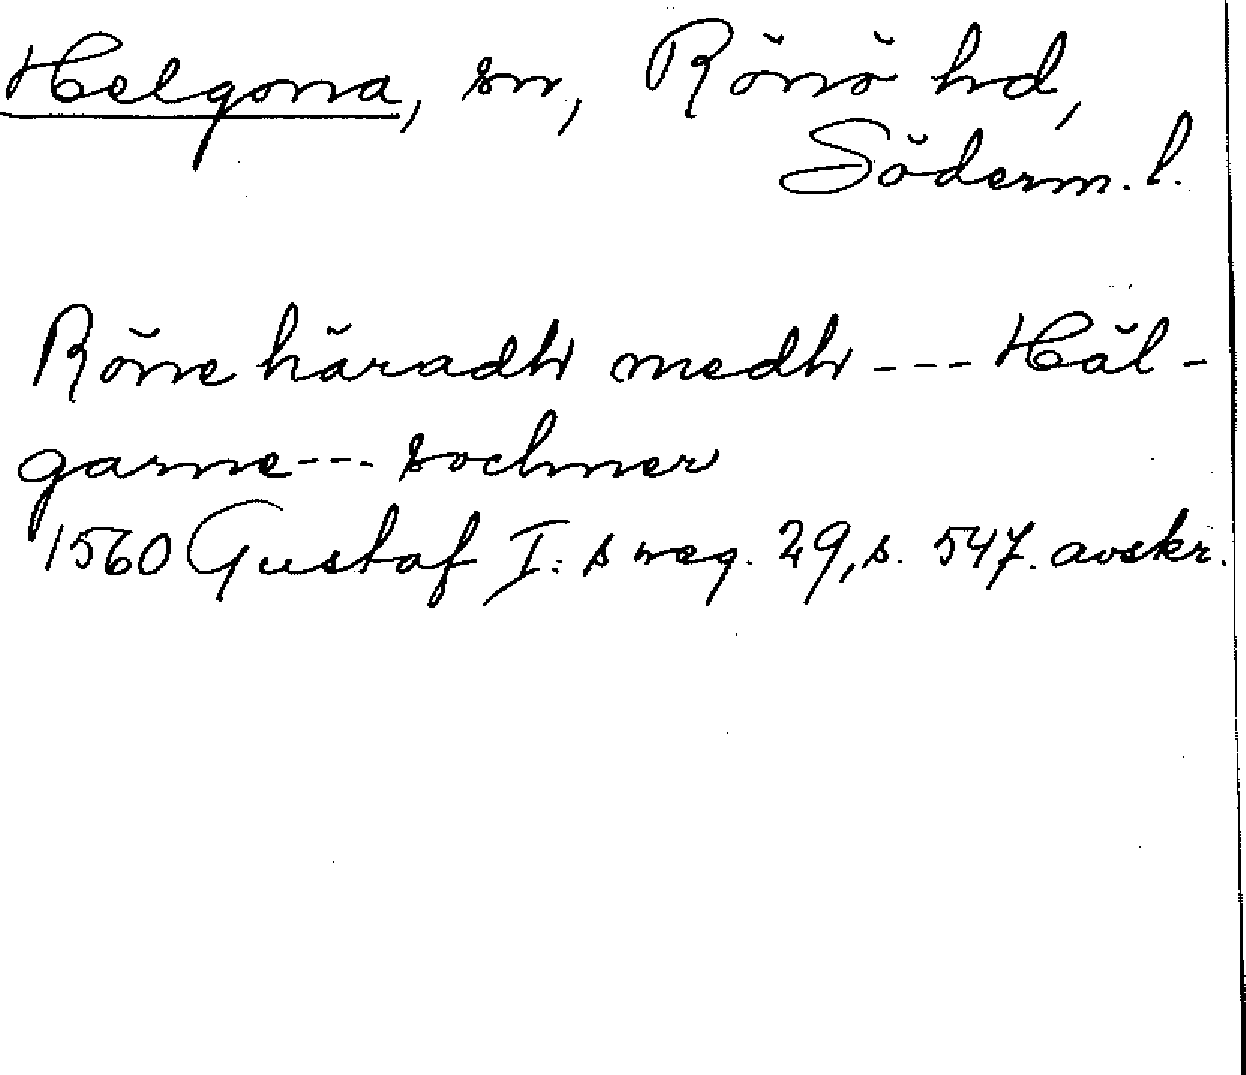 Helgona, sn, Rönö hd,
Söderm. l.
Röne häradh medh --- Häl-
garne --- sochner
1560 Gustaf I:s reg. 29, s. 547. avskr.